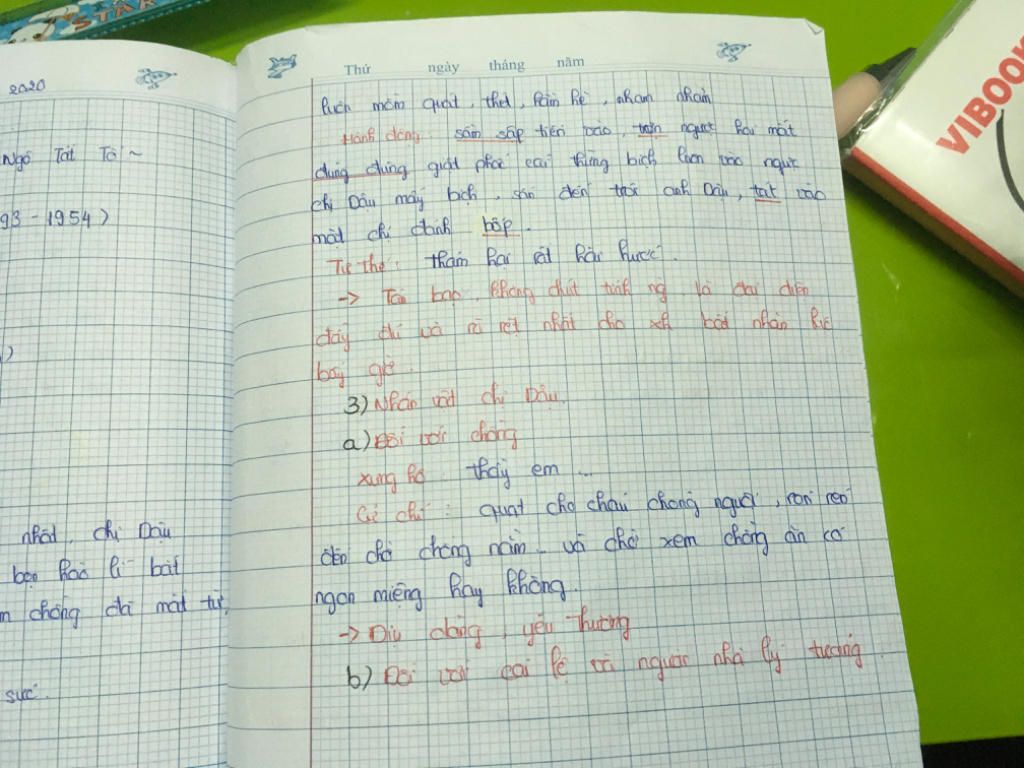 STAR
2020
Ngô Tất Tố ~
93 - 1954)
)
nhất, chị Dậu
bọn hào lí bắt
m chồng đã mất tư,
sức.
Thứ ngày tháng năm
luôn mồm quát, thét, hầm hè, nham nhảm
Hành động: sầm sập tiến vào, trợn ngược hai mắt
đùng đùng giật phắt cái thừng bịch luôn vào ngực
chị Dậu mấy bịch, sấn đến trói anh Dậu, tát vào
mặt chị đánh bốp.
Tư thế: thảm hại rất hài hước.
-> Tàn bạo, không chút tính ng là đại diện
đầy đủ và rõ rệt nhất cho xh bất nhân lúc
bấy giờ.
3) Nhân vật chị Dậu.
a) Đối với chồng
xưng hô thầy em ...
Cử chỉ: quạt cho cháo chóng nguội, rón rén
đến chỗ chồng nằm và chờ xem chồng ăn có
ngon miệng hay không.
-> Dịu dàng, yêu thương
b) Đối với cai lệ và người nhà lý trưởng.
VIBOO